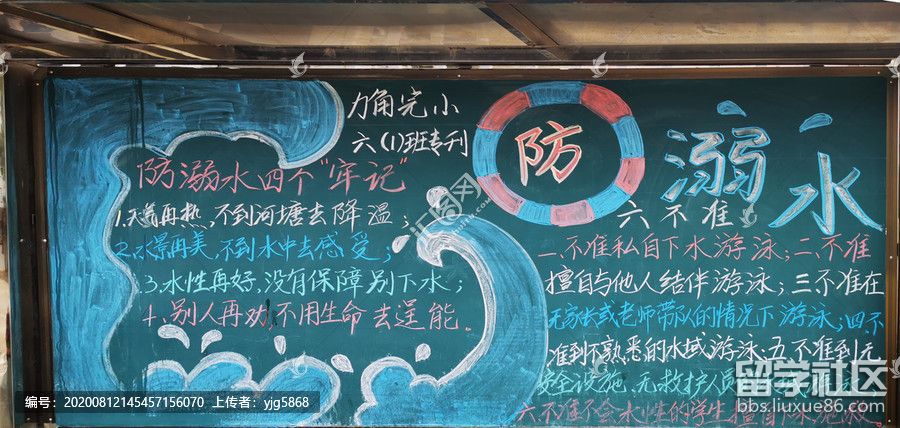 力角完小
六(1)班专刊
防溺水
防溺水四个"牢记"
1.天气再热,不到河塘去降温;
2.水景再美,不到水中去感受;
3.水性再好,没有保障别下水;
4.别人再劝,不用生命去逞能。
六不准
一.不准私自下水游泳;二.不准
擅自与他人结伴游泳;三不准在
无家长或老师带队的情况下游泳;四.不
准到不熟悉的水域游泳;五不准到无
安全设施、无救护人员的
六.不准不会水性的学生擅自下水施救
留学社区
bbs.liuxue86.com
编号:20200812145457156070 上传者:yjg5868